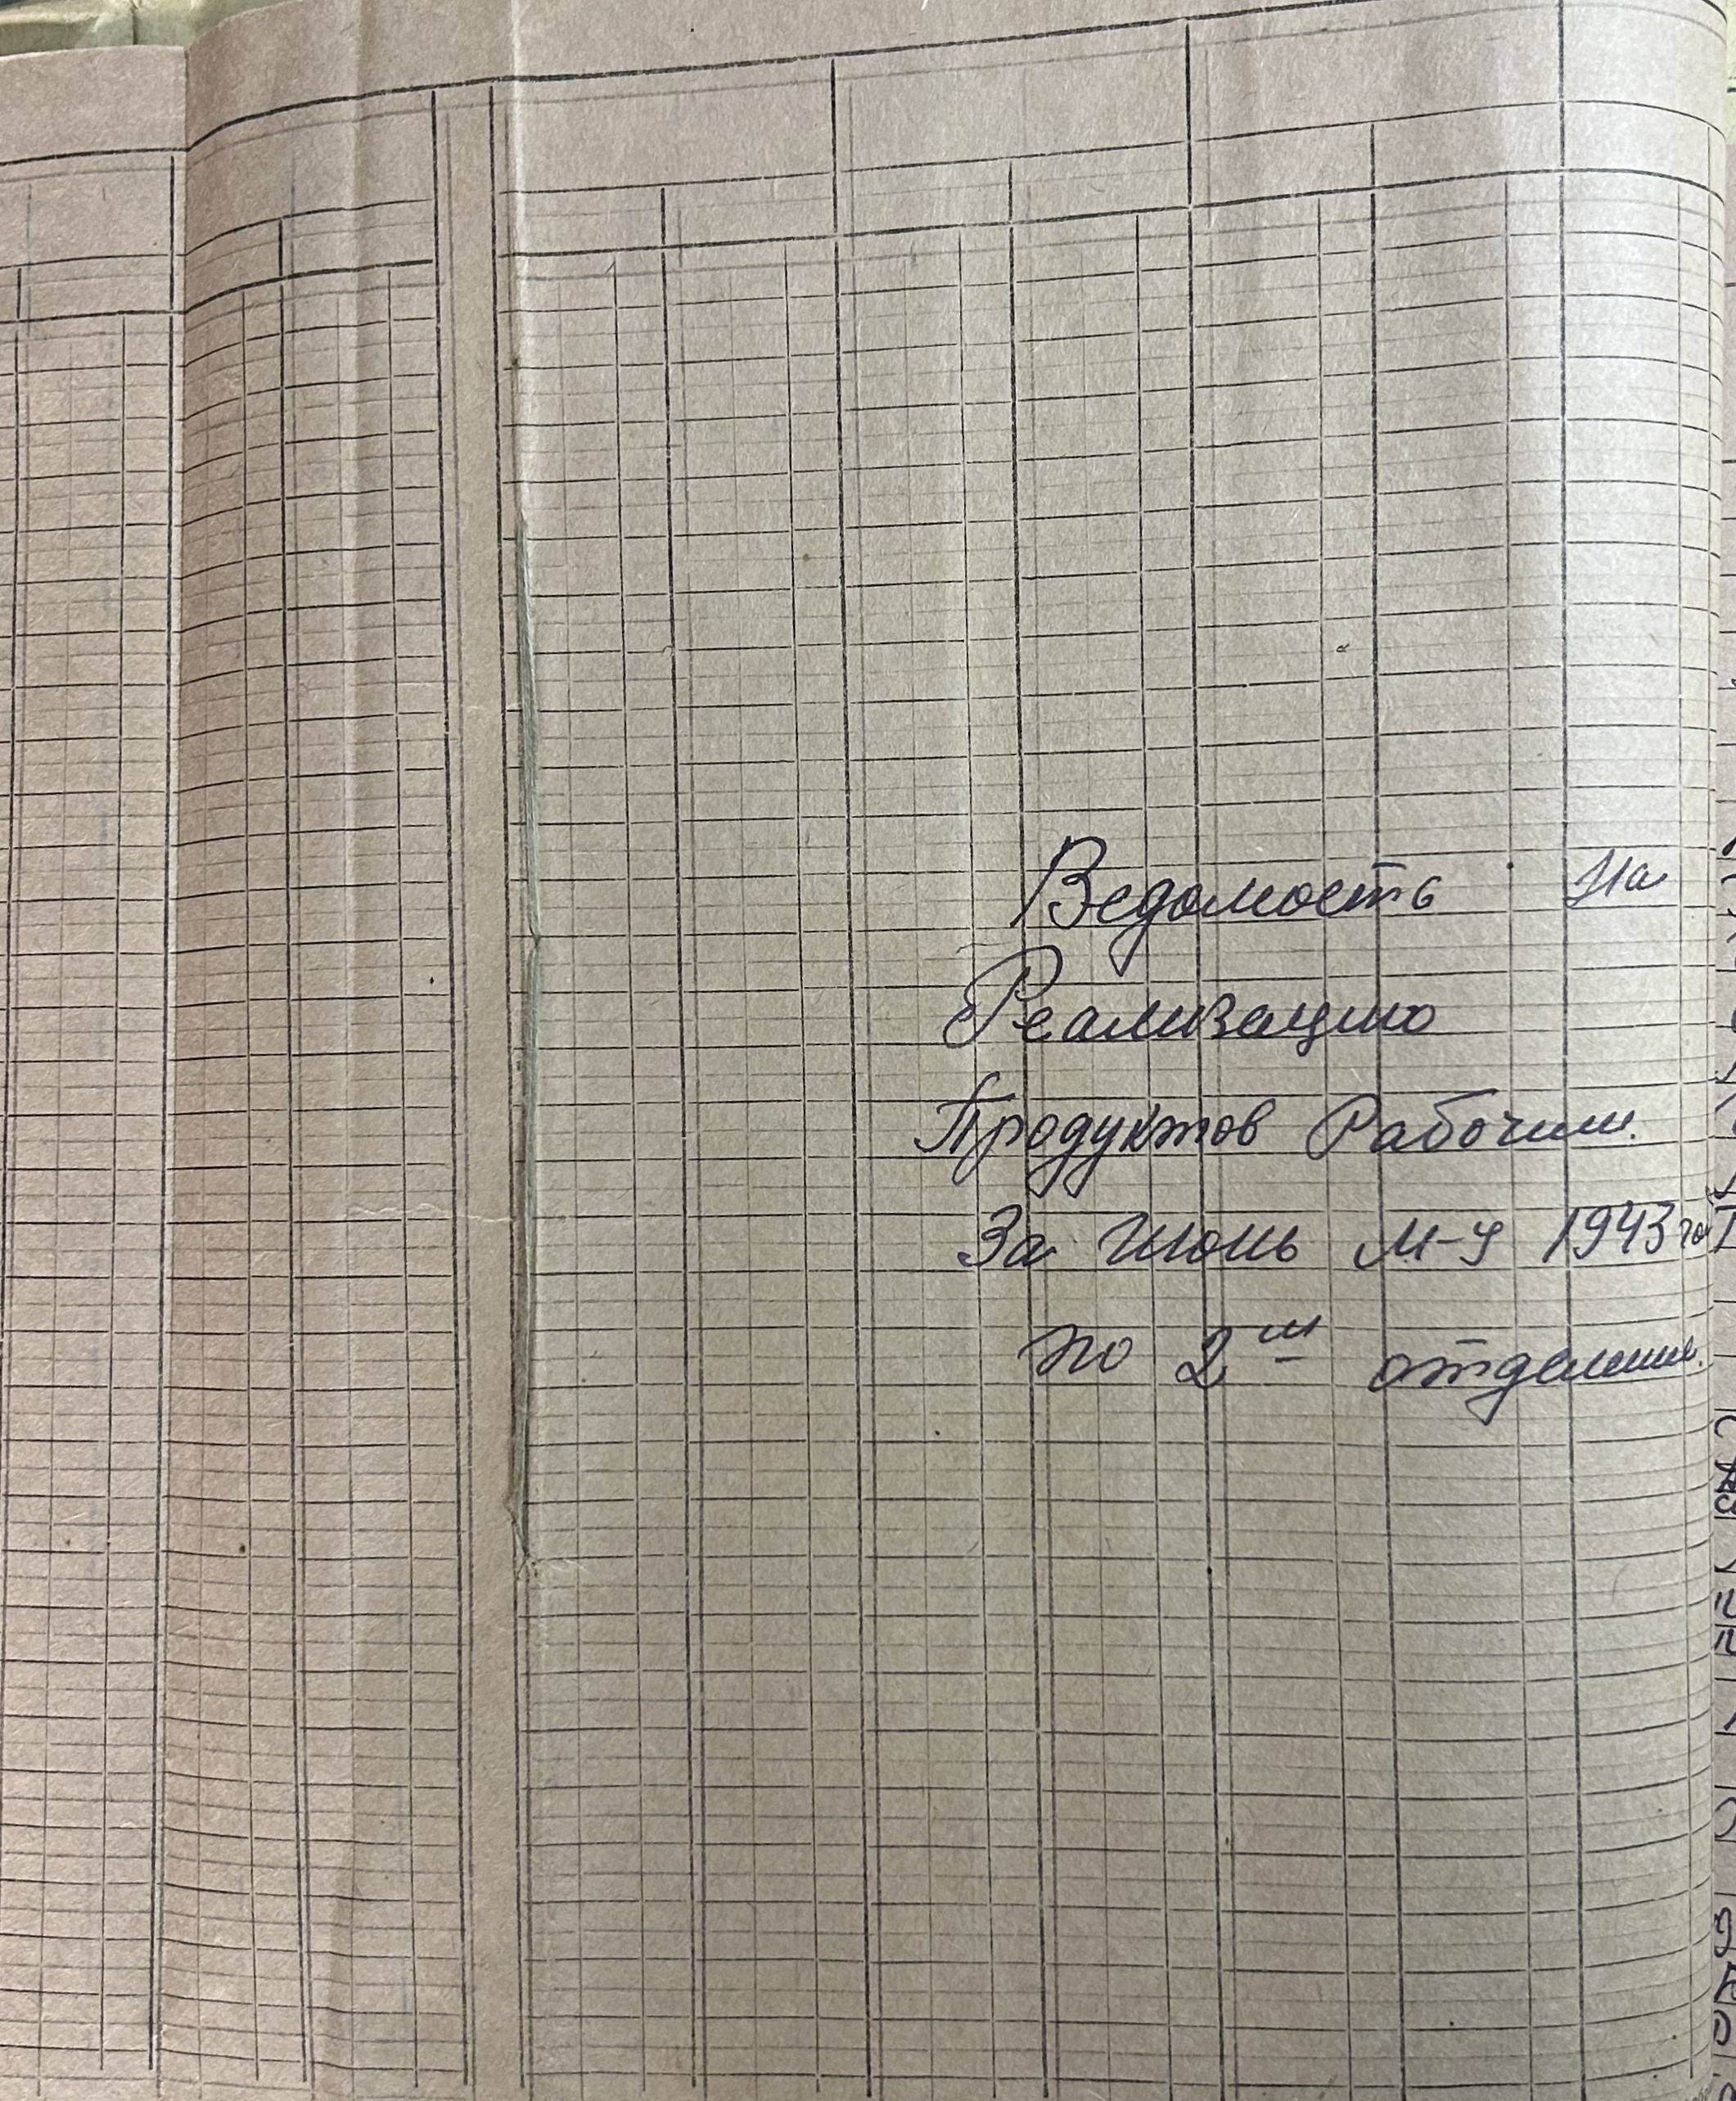 Ведомость на
Реализацию
Продуктов Рабочим.
За Июнь м-ц 1943 го
по 2 м отделению.